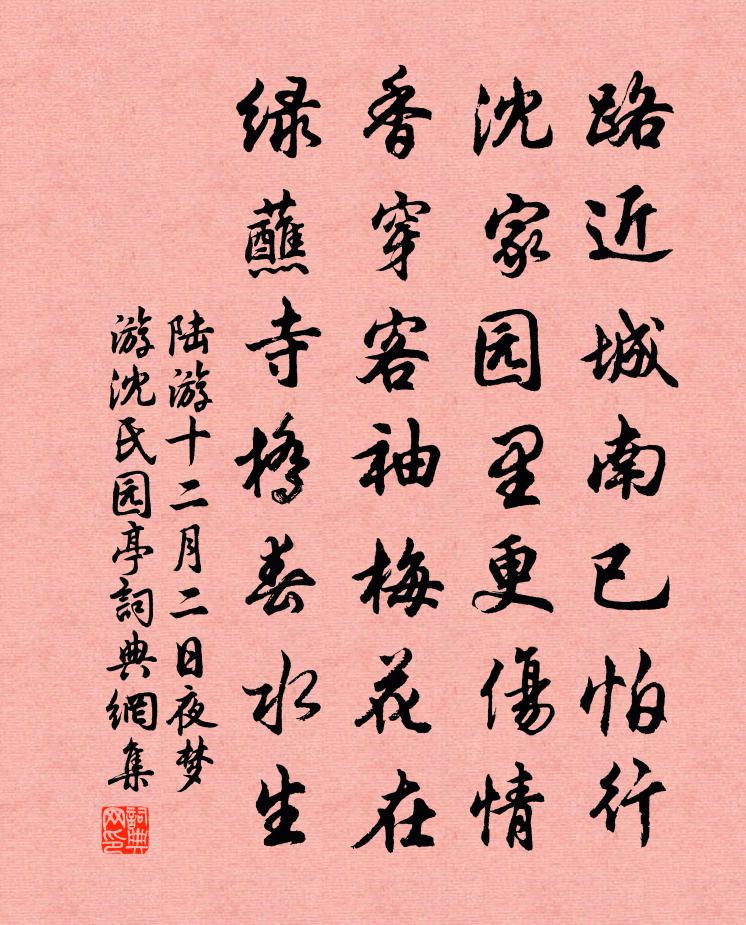 路近城南已怕行
沈家园里更傷情
香穿客袖梅花在
绿蘸寺橋春水生
陆游十二月二日夜梦
游沈氏园亭詞典網集
詞典网印